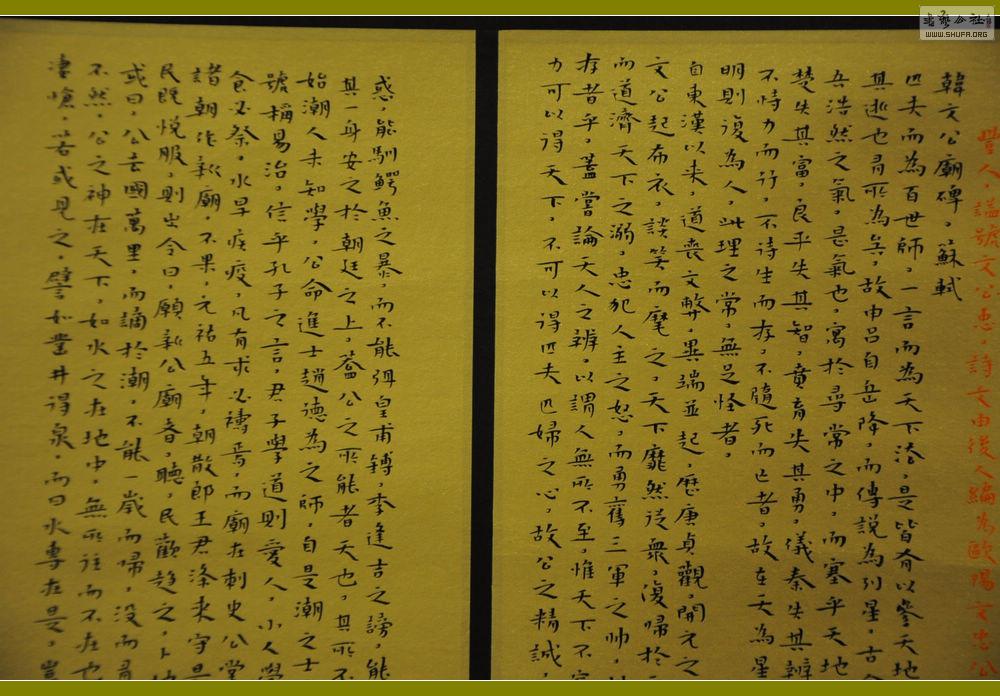 豐人，諡號文公惠，詩文由後人編為歐陽文忠公
韓文公廟碑，蘇軾
匹夫而為百世師，一言而為天下法，是皆有以參天地
其逝也有所為矣，故申呂自岳降，而傳說為列星，古今
吾浩然之氣，是氣也，寓於尋常之中，而塞乎天地
楚失其富，良平失其智，賁育失其勇，儀秦失其辨
不恃力而行，不待生而存，不隨死而亡者，故在天為星
明則復為人，此理之常，無足怪者，
自東漢以來，道喪文弊，異端並起，歷唐貞觀，開元之
文公起布衣，談笑而麾之，天下靡然從眾，復歸於
而道濟天下之溺，忠犯人主之怒，而勇奪三軍之帥，
存者乎，蓋嘗論天人之辨，以謂人無所不至，惟天下不容
力可以得天下，不可以得匹夫匹婦之心，故公之精誠，
惑，能馴鱷魚之暴，而不能弭皇甫鎛，李逢吉之謗，能
其一身安之於朝廷之上，蓋公之所能者天也，其所不
始潮人未知學，公命進士趙德為之師，自是潮之士
號稱易治，信乎孔子之言，君子學道則愛人，小人學
食必祭，水旱疾疫，凡有求必禱焉，而廟在刺史公堂
諸朝作新廟，不果，元祐五年，朝散郎王君滌來守是
民既悅服，則出令曰，願新公廟者，聽，民歡趨之，卜地
或曰，公去國萬里，而謫於潮，不能一歲而歸，沒而有
不然，公之神在天下，如水之在地中，無所往而不在也
悽愴，若或見之，譬如鑿井得泉，而曰水專在是，豈
书艺公社
WWW.SHUFA.ORG